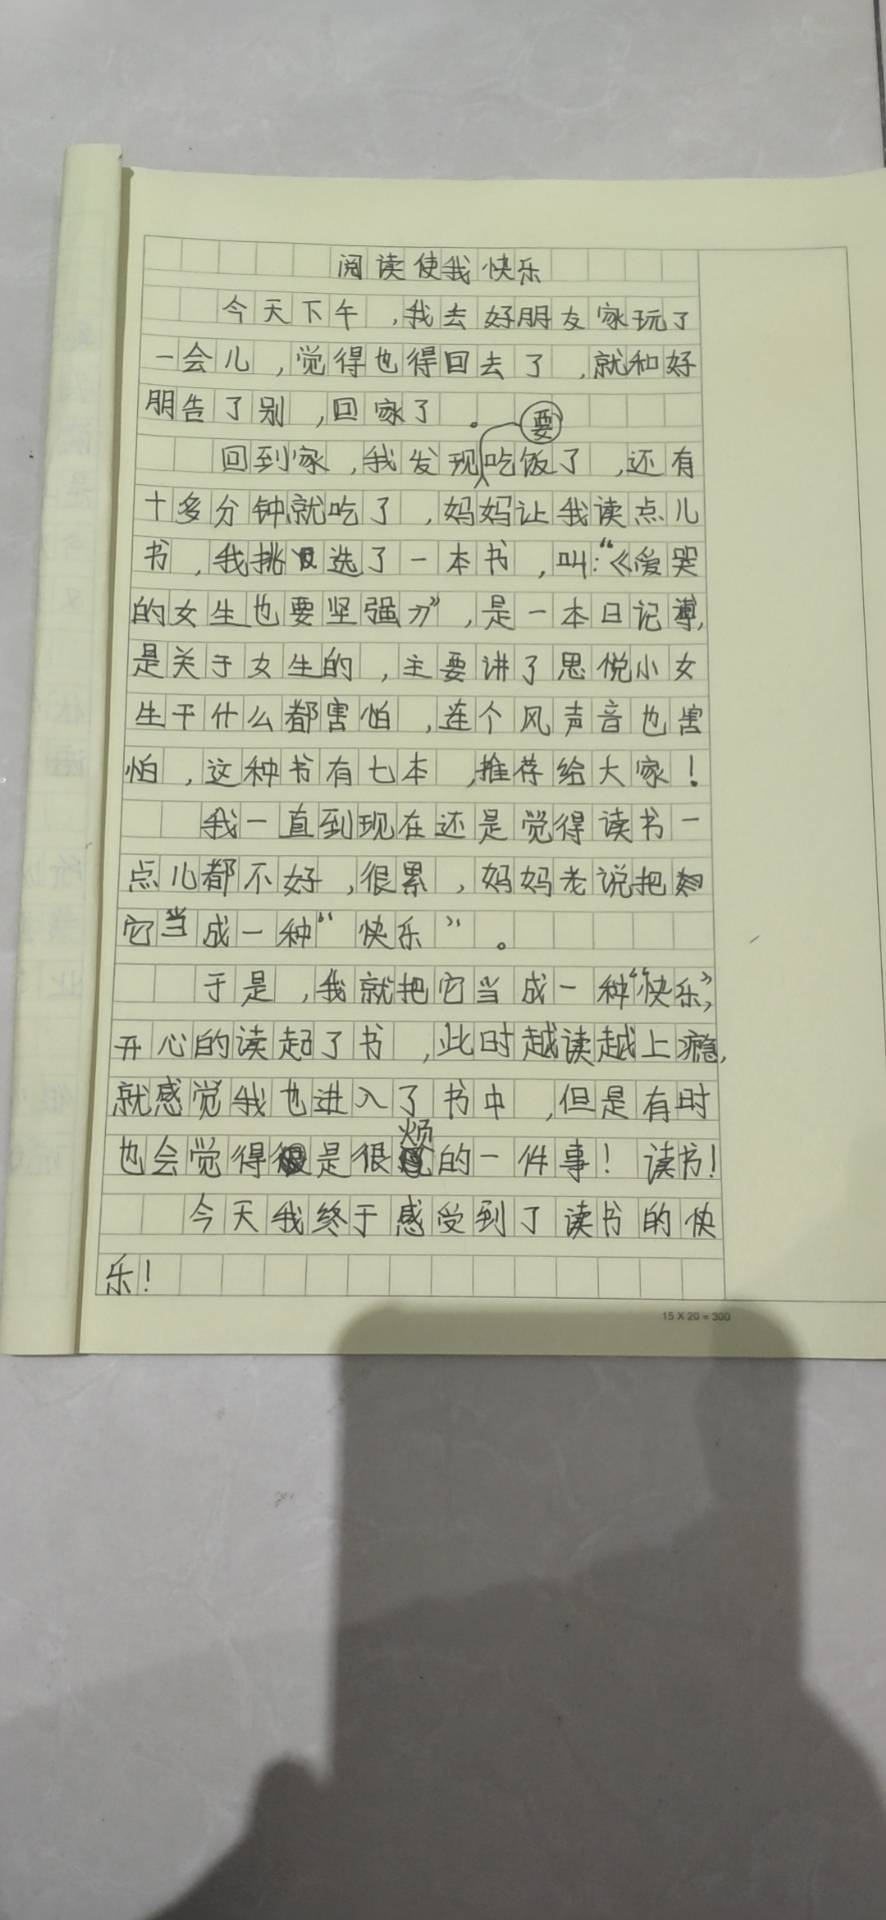 阅读使我快乐
今天下午,我去好朋友家玩了
一会儿,觉得也得回去了,就和好
朋告了别,回家了。
回到家,我发现要吃饭了,还有
十多分钟就吃了,妈妈让我读点儿
书,我挑选了一本书,叫:“《爱哭
的女生也要坚强》”,是一本日记,
是关于女生的,主要讲了思悦小女
生干什么都害怕,连个风声音也害
怕,这种书有七本,推荐给大家!
我一直到现在还是觉得读书一
点儿都不好,很累,妈妈老说把
它当成一种“快乐”。
于是,我就把它当成一种“快乐”,
开心的读起了书,此时越读越上瘾,
就感觉我也进入了书中,但是有时
也会觉得是很烦的一件事!读书!
今天我终于感受到了读书的快
乐!
15 X 20 = 300